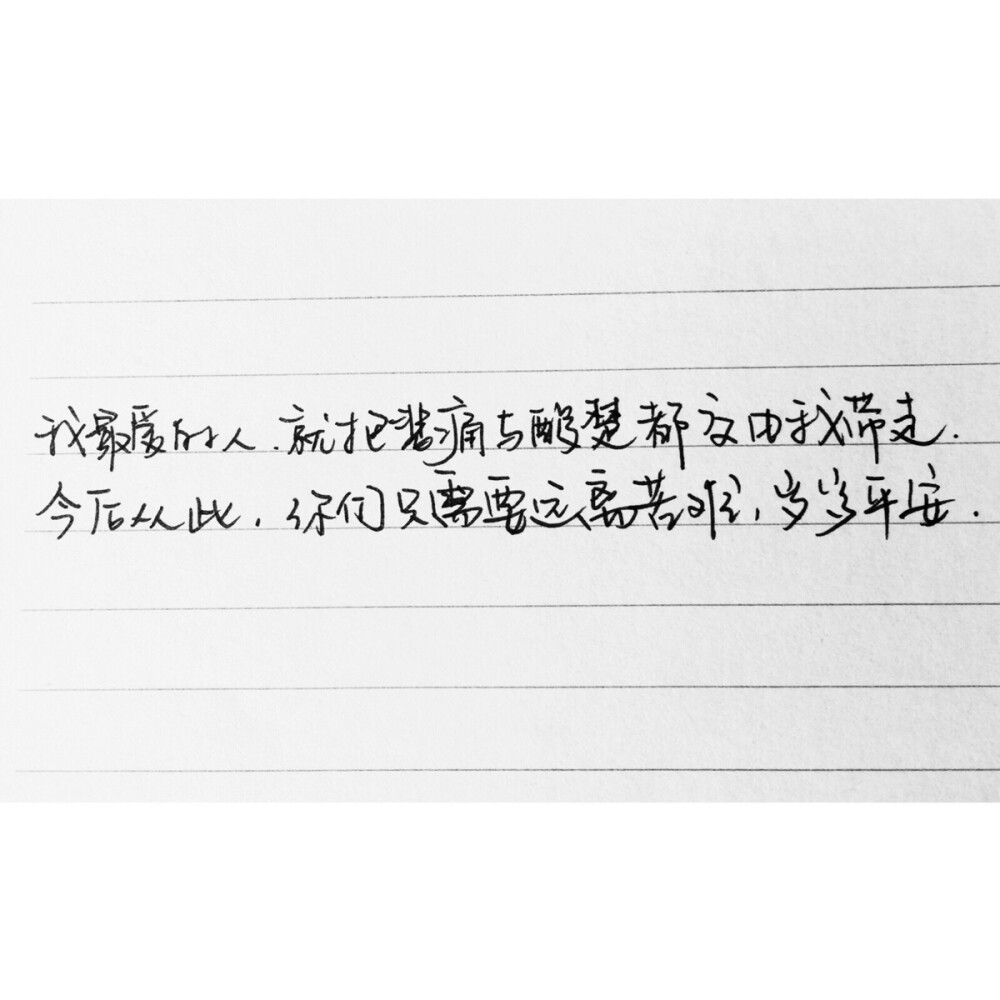 我最爱的人.就把悲痛与酸楚都交由我带走.
今后从此,你们只需要远离苦难,岁岁平安.